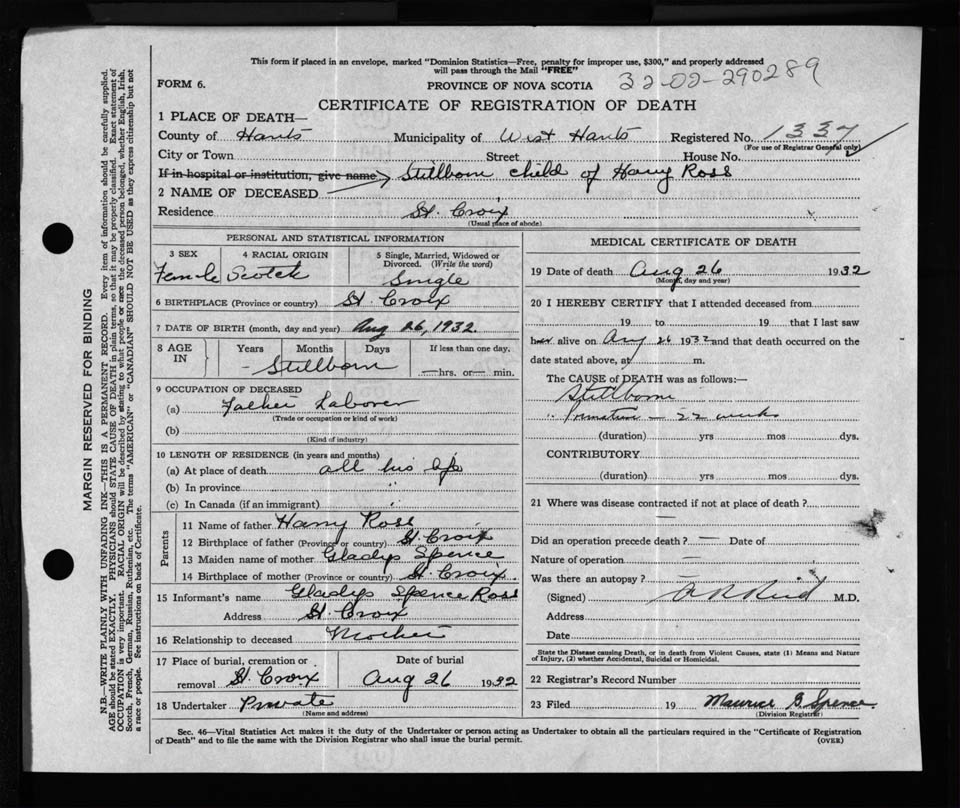 This form if placed in an envelope, marked "Dominion Statistics—Free, penalty for improper use, $300," and properly addressed
will pass through the Mail "FREE"
32-02-290289
FORM 6.
PROVINCE OF NOVA SCOTIA
CERTIFICATE OF REGISTRATION OF DEATH
1 PLACE OF DEATH—
County of Hants Municipality of West Hants Registered No. 1337
(For use of Registrar General only)
City or Town Street House No.
If in hospital or institution, give name Stillborn child of Harry Ross
2 NAME OF DECEASED
Residence St. Croix
(Usual place of abode)
PERSONAL AND STATISTICAL INFORMATION
3 SEX 4 RACIAL ORIGIN 5 Single, Married, Widowed or Divorced. (Write the word)
Female Scotch Single
6 BIRTHPLACE (Province or country) St Croix
7 DATE OF BIRTH (month, day and year) Aug 26, 1932.
8 AGE IN Years Months Days If less than one day.
- Stillborn —hrs. or— min.
9 OCCUPATION OF DECEASED
(a) Father Laborer
(Trade or occupation or kind of work)
(b)
(Kind of industry)
10 LENGTH OF RESIDENCE (in years and months)
(a) At place of death all his life
(b) In province "
(c) In Canada (if an immigrant) "
Parents
11 Name of father Harry Ross
12 Birthplace of father (Province or country) St. Croix
13 Maiden name of mother Gladys Spence
14 Birthplace of mother (Province or country) St Croix.
15 Informant's name Gladys Spence Ross
Address St. Croix
16 Relationship to deceased Mother
17 Place of burial, cremation or removal St. Croix Date of burial Aug 26 1932
18 Undertaker Private
(Name and address)
MEDICAL CERTIFICATE OF DEATH
19 Date of death Aug 26 1932
(Month, day and year)
20 I HEREBY CERTIFY that I attended deceased from
19 to 19 that I last saw
her alive on Aug 26 1932 and that death occurred on the
date stated above, at m.
The CAUSE of DEATH was as follows:—
Stillborn
" Premature - 22 weeks
(duration) yrs mos dys.
CONTRIBUTORY
(duration) yrs mos dys.
21 Where was disease contracted if not at place of death?
—
Did an operation precede death? — Date of
Nature of operation —
Was there an autopsy? —
(Signed) M.D.
Address
Date
State the Disease causing Death, or in death from Violent Causes, state (1) Means and Nature
of Injury, (2) whether Accidental, Suicidal or Homicidal.
22 Registrar's Record Number
23 Filed 19 Maurice G Spence.
(Division Registrar)
Sec. 46—Vital Statistics Act makes it the duty of the Undertaker or person acting as Undertaker to obtain all the particulars required in the "Certificate of Registration
of Death" and to file the same with the Division Registrar who shall issue the burial permit.
(OVER)
MARGIN RESERVED FOR BINDING
N.B.—WRITE PLAINLY WITH UNFADING INK—THIS IS A PERMANENT RECORD. Every item of information should be carefully supplied.
AGE should be stated EXACTLY. PHYSICIANS should STATE CAUSE OF DEATH in plain terms, so that it may be properly classified. Exact statement of
OCCUPATION is very important. RACIAL ORIGIN will be described by stating to what people or race the deceased person belonged, whether English, Irish,
Scotch, French, German, Russian, Ruthenian, etc. The terms "AMERICAN" or "CANADIAN" SHOULD NOT BE USED as they express citizenship but not
a race or people. See instructions on back of Certificate.